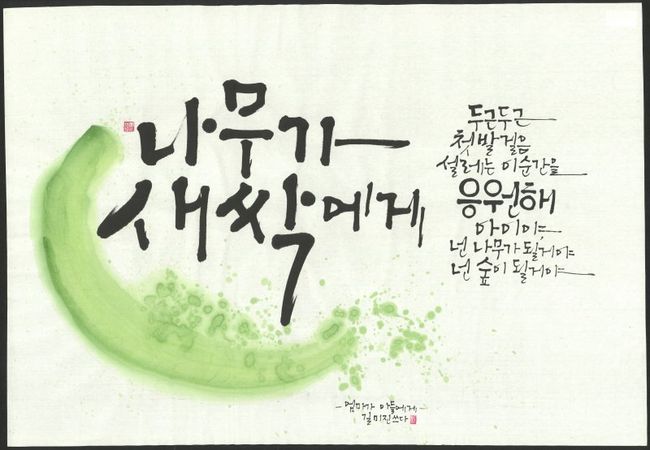 나무가
새싹에게
두근두근
첫 발걸음
설레는 이 순간을
응원해
아이야,
넌 나무가 될거야
넌 숲이 될거야
엄마가 아들에게
길미진 쓰다